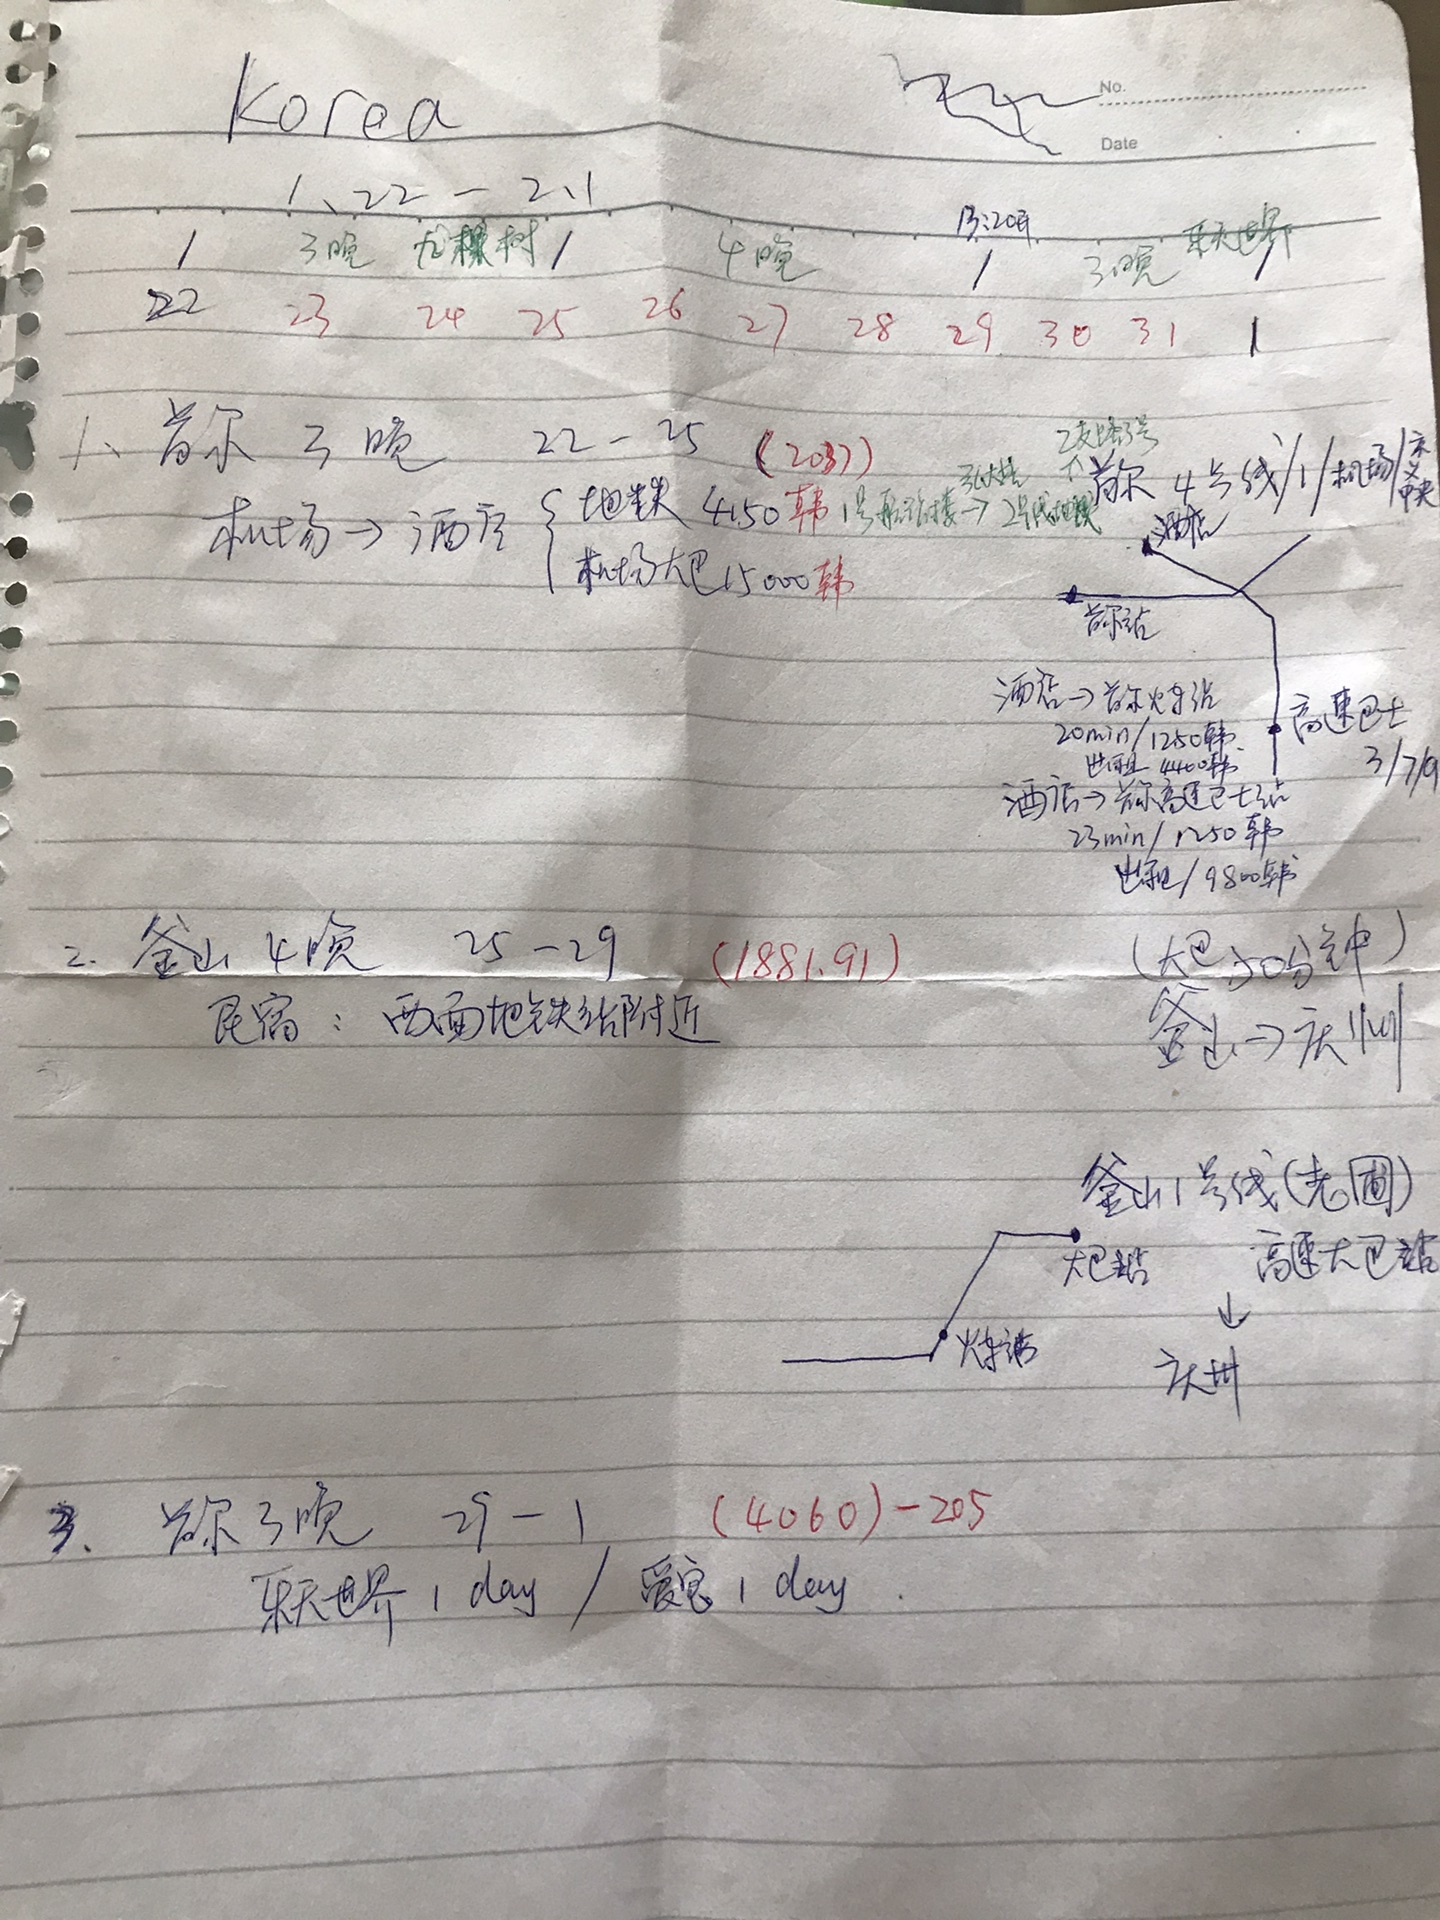 Korea
No.
Date
1、22－2、1
3晚 棵树 4晚 13:20 3晚 乐天世界
22 23 24 25 26 27 28 29 30 31 1
1、首尔 3晚 22－25 (2037)
首尔 4号线/1/机场/京义中央
机场→酒店 地铁 4150韩 1号航站楼→2号线地铁
机场大巴 15000韩
酒店
首尔站
高速巴士
3/7/9
酒店→首尔火车站
20min/1250韩
出租 4400韩
酒店→首尔高速巴士站
23min/1250韩
出租/9800韩
2. 釜山 4晚 25－29 (1881.91)
民宿：西面地铁站附近
(大巴50分钟)
釜山→庆州
釜山1号线(老圃)
大巴站 高速大巴站
↓
火车站 庆州
3、首尔3晚 29－1 (4060)－205
乐天世界 1 day / 爱宝 1 day.